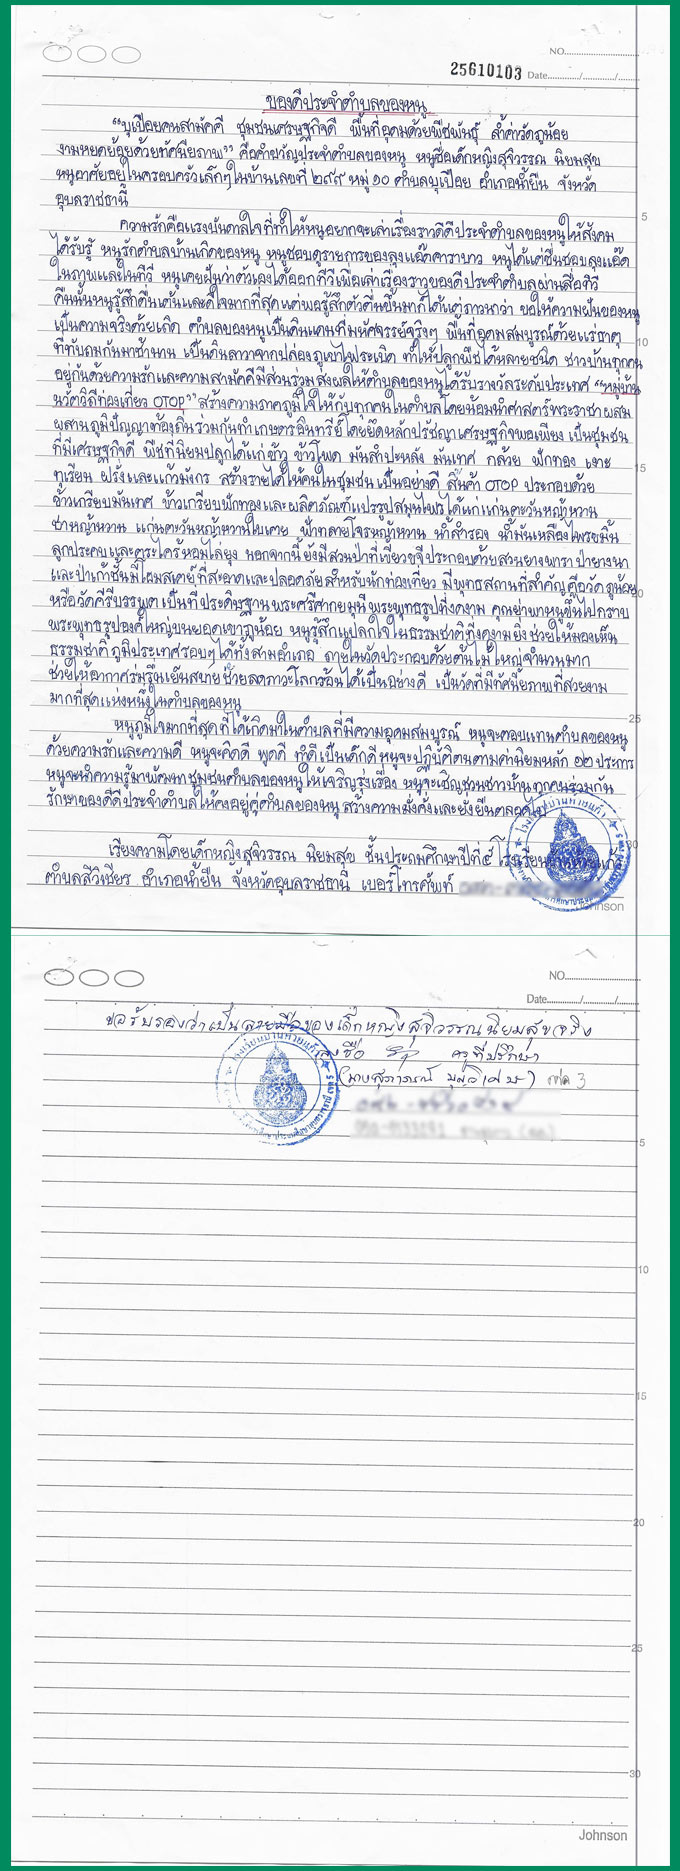 NO.
25610103 Date
ของดีประจำตำบลของหนู
"บุเปือยคนสามัคคี ชุมชนเศรษฐกิจดี พื้นที่อุดมด้วยพืชพันธุ์ ล้ำค่าวัดภูน้อย
งามหยดย้อยด้วยทัศนียภาพ" คือคำขวัญประจำตำบลของหนู หนูชื่อเด็กหญิงสุจิวรรณ นิยมสุข
หนูอาศัยอยู่ในครอบครัวเล็กๆในบ้านเลขที่ ๒๙๙ หมู่ ๑๐ ตำบลบุเปือย อำเภอน้ำยืน จังหวัด
อุบลราชธานี
5
ความรักคือแรงบันดาลใจที่ทำให้หนูอยากจะเล่าเรื่องราวดีดีประจำตำบลของหนูให้สังคม
ได้รับรู้ หนูรักตำบลบ้านเกิดของหนู หนูชอบดูรายการของลุงแอ๊ดคาราบาว หนูได้แต่ชื่นชอบลุงแอ๊ด
ในภาพและในทีวี หนูเคยฝันว่าตัวเองได้ออกทีวีเพื่อเล่าเรื่องราวของดีประจำตำบลผ่านสื่อทีวี
คืนนั้นหนูรู้สึกตื่นเต้นและดีใจมากที่สุดแต่พอรู้สึกตัวตื่นขึ้นมาก็ได้แต่ภาวนาว่า ขอให้ความฝันของหนู
เป็นความจริงด้วยเถิด ตำบลของหนูเป็นดินแดนที่มหัศจรรย์จริงๆ พื้นที่อุดมสมบูรณ์ด้วยแร่ธาตุ
10
ที่ทับถมกันมาช้านาน เป็นดินลาวาจากปล่องภูเขาไฟระเบิด ทำให้ปลูกพืชได้หลายชนิด ชาวบ้านทุกคน
อยู่กันด้วยความรักและความสามัคคีมีส่วนร่วมส่งผลให้ตำบลของหนูได้รับรางวัลระดับประเทศ "หมู่บ้าน
นวัตวิถีท่องเที่ยว OTOP" สร้างความภาคภูมิใจให้กับทุกคนในตำบลโดยน้อมนำศาสตร์พระราชา ผสม
ผสานภูมิปัญญาท้องถิ่นร่วมกันทำเกษตรอินทรีย์โดยยึดหลักปรัชญาเศรษฐกิจพอเพียง เป็นชุมชน
ที่มีเศรษฐกิจดี พืชที่นิยมปลูกได้แก่ข้าว ข้าวโพด มันสำปะหลัง มันเทศ กล้วย ฟักทอง เงาะ
15
ทุเรียน ฝรั่งและแก้วมังกร สร้างรายได้ให้คนในชุมชนเป็นอย่างดี สินค้า OTOP ประกอบด้วย
ข้าวเกรียบมันเทศ ข้าวเกรียบฟักทองและผลิตภัณฑ์แปรรูปสมุนไพรได้แก่แก่นตะวันหญ้าหวาน
ชาหญ้าหวาน แก่นตะวันหญ้าหวานใบเตย ฟ้าทลายโจรหญ้าหวาน น้ำสำรอง น้ำมันเหลืองไพรขมิ้น
ลูกประคบและตะไคร้หอมไล่ยุง นอกจากนี้ยังมีสวนป่าที่เขียวขจีประกอบด้วยสวนยางพารา ป่ายางนา
และป่าเก้าชั้นมีโฮมสเตย์ที่สะอาดและปลอดภัยสำหรับนักท่องเที่ยว มีพุทธสถานที่สำคัญคือวัดภูน้อย
20
หรือวัดคีรีบรรพต เป็นที่ประดิษฐานพระศรีศากยมุนีพระพุทธรูปที่งดงาม คุณย่าพาหนูขึ้นไปกราบ
พระพุทธรูปองค์ใหญ่บนยอดเขาภูน้อย หนูรู้สึกแปลกใจในธรรมชาติที่งดงามยิ่งช่วยให้มองเห็น
ธรรมชาติ ภูมิประเทศรอบๆได้ทั้งสามอำเภอ ภายในวัดประกอบด้วยต้นไม้ใหญ่จำนวนมาก
ช่วยให้อากาศร่มรื่นเย็นสบาย ช่วยลดภาวะโลกร้อนได้เป็นอย่างดี เป็นวัดที่มีทัศนียภาพที่สวยงาม
มากที่สุดแห่งหนึ่งในตำบลของหนู
25
หนูภูมิใจมากที่สุดที่ได้เกิดมาในตำบลที่มีความอุดมสมบูรณ์ หนูจะตอบแทนตำบลของหนู
ด้วยความรักและความดี หนูจะคิดดี พูดดี ทำดีเป็นเด็กดีหนูจะปฏิบัติตนตามค่านิยมหลัก ๑๒ ประการ
หนูจะนำความรู้มาพัฒนาชุมชนตำบลของหนูให้เจริญรุ่งเรือง หนูจะเชิญชวนชาวบ้านทุกคนร่วมกัน
รักษาของดีดีประจำตำบลให้คงอยู่คู่ตำบลของหนูสร้างความมั่งคั่งและยั่งยืนตลอดไป
30
เรียงความโดยเด็กหญิงสุจิวรรณ นิยมสุข ชั้นประถมศึกษาปีที่ ๕ โรงเรียนบ้านห้วยแก้ว
ตำบลสีวิเชียร อำเภอน้ำยืน จังหวัดอุบลราชธานี เบอร์โทรศัพท์
Johnson
NO.
Date
ขอรับรองว่าเป็นลายมือของเด็กหญิงสุจิวรรณ นิยมสุข จริง
ลงชื่อ ครูที่ปรึกษา
(นางสุภาภรณ์
5
10
15
20
25
30
Johnson